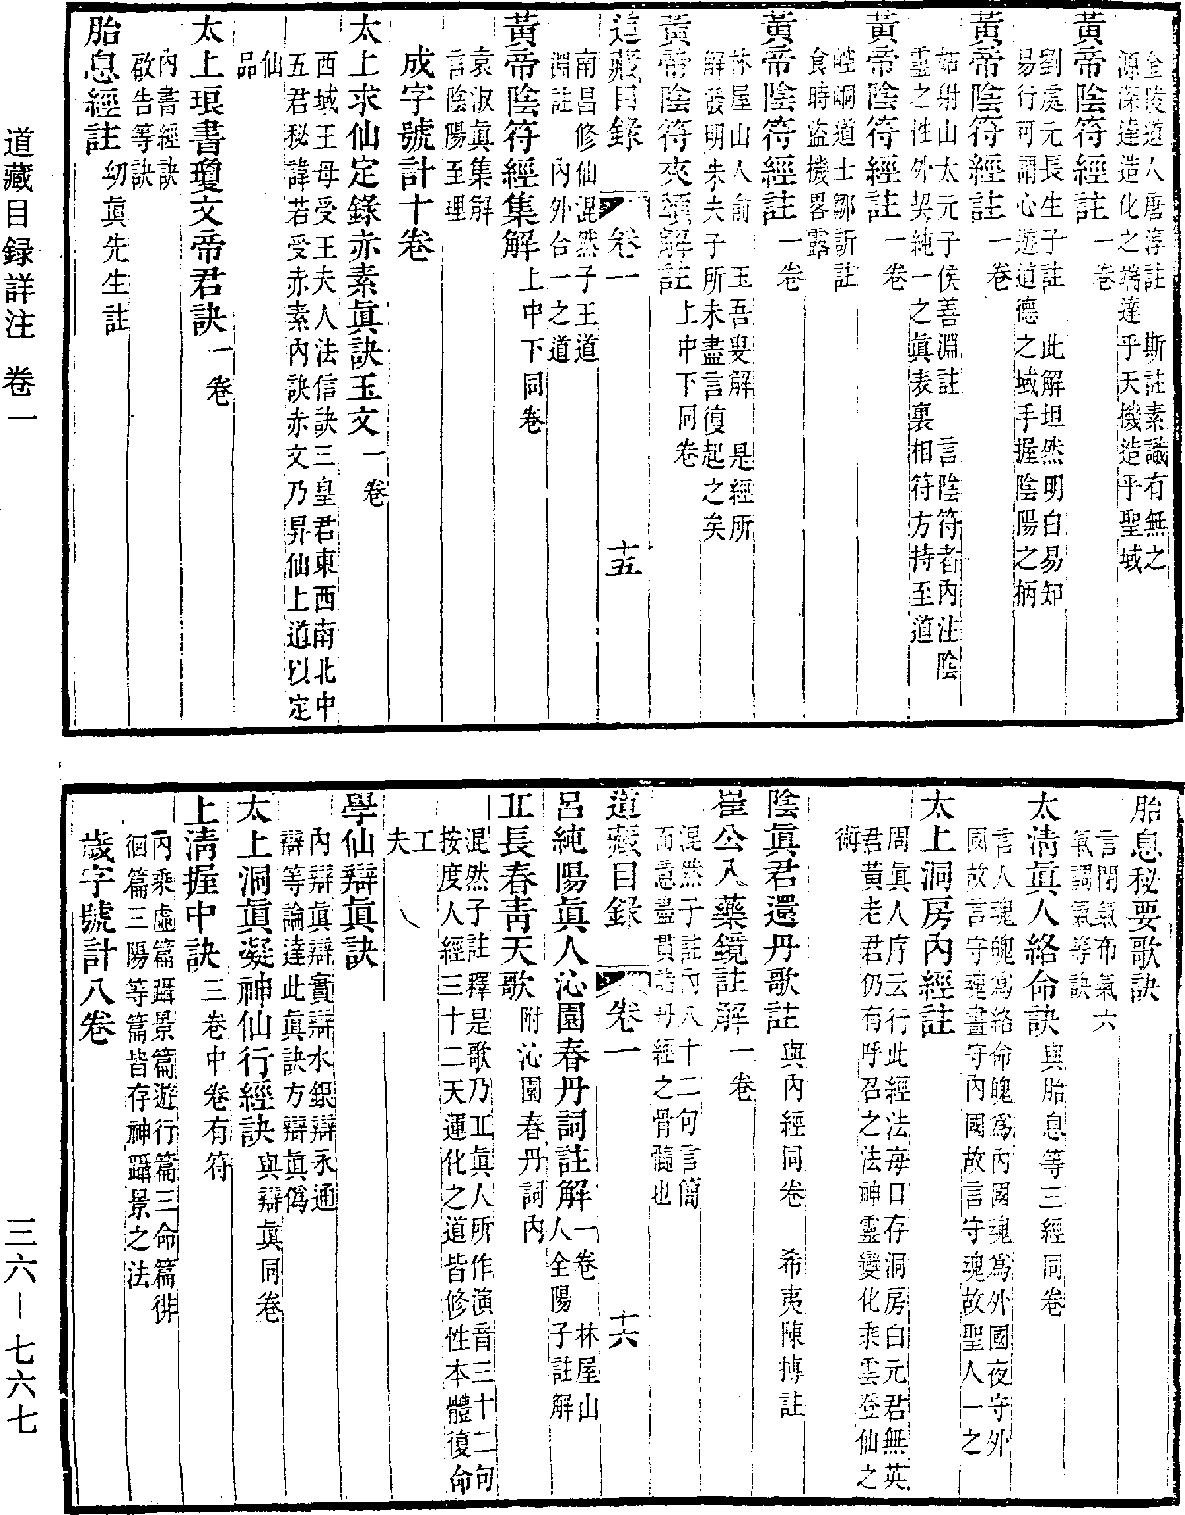 道藏目錄詳注 卷一
三六—七六七
金陵道人唐淳註 斯註素議有無之
源深達造化之端達乎天機造乎聖域
黃帝陰符經註 一卷
劉處元長生子註 此解坦然明白易知
易行可謂心遊道德之域手握陰陽之柄
黃帝陰符經註 一卷
姑射山太元子侯善淵註 言陰符者內注陰
靈之性外契純一之眞表裏相符方持至道
黃帝陰符經註 一卷
崆峒道士鄒訢註
食時盜機畧露
黃帝陰符經註 一卷
林屋山人俞 玉吾叟解 是經所
解發明朱夫子所未盡言復起之矣
黃帝陰符夾頌解註 上中下同卷
道藏目錄 卷一 十五
南昌修仙混然子王道
淵註 內外合一之道
黃帝陰符經集解 上中下同卷
袁淑眞集解
言陰陽至理
成字號計十卷
太上求仙定錄赤素眞訣玉文 一卷
西域王母受王夫人法信訣三皇君東西南北中
五君秘諱若受赤素內訣赤文乃昇仙上道以定
仙
品
太上琅書瓊文帝君訣 一卷
內書經訣
啟告等訣
胎息經註 幻眞先生註
胎息秘要歌訣
言閉氣布氣六
氣調氣等訣
太淸眞人絡命訣 與胎息等三經同卷
言人魂魄爲絡命魄爲內國魂爲外國夜守外
國故言守魂晝守內國故言守魂故聖人一之
太上洞房內經註
周眞人序云行此經法每日存洞房白元君無英
君黃老君仍有呼召之法神靈變化乘雲登仙之
術
陰眞君還丹歌註 與內經同卷 希夷陳摶註
崔公入藥鏡註解 一卷
混然子註內八十二句言簡
而意盡貫諸丹經之骨髓也
道藏目錄 卷一 十六
呂純陽眞人沁園春丹詞註解 一卷 林屋山
人全陽子註解
丘長春靑天歌 附沁園春丹詞內
混然子註釋是歌乃丘眞人所作演音三十二句
按度人經三十二天運化之道皆修性本體復命
工
夫
學仙辯眞訣
內辯眞辯實辯水銀辯汞通
辯等論達此眞訣方辯眞僞
太上洞眞凝神仙行經訣 與辯眞同卷
上淸握中訣 三卷中卷有符
內乘虛篇躡景篇遊行篇三命篇徘
徊篇三陽等篇皆存神躡景之法
歲字號計八卷